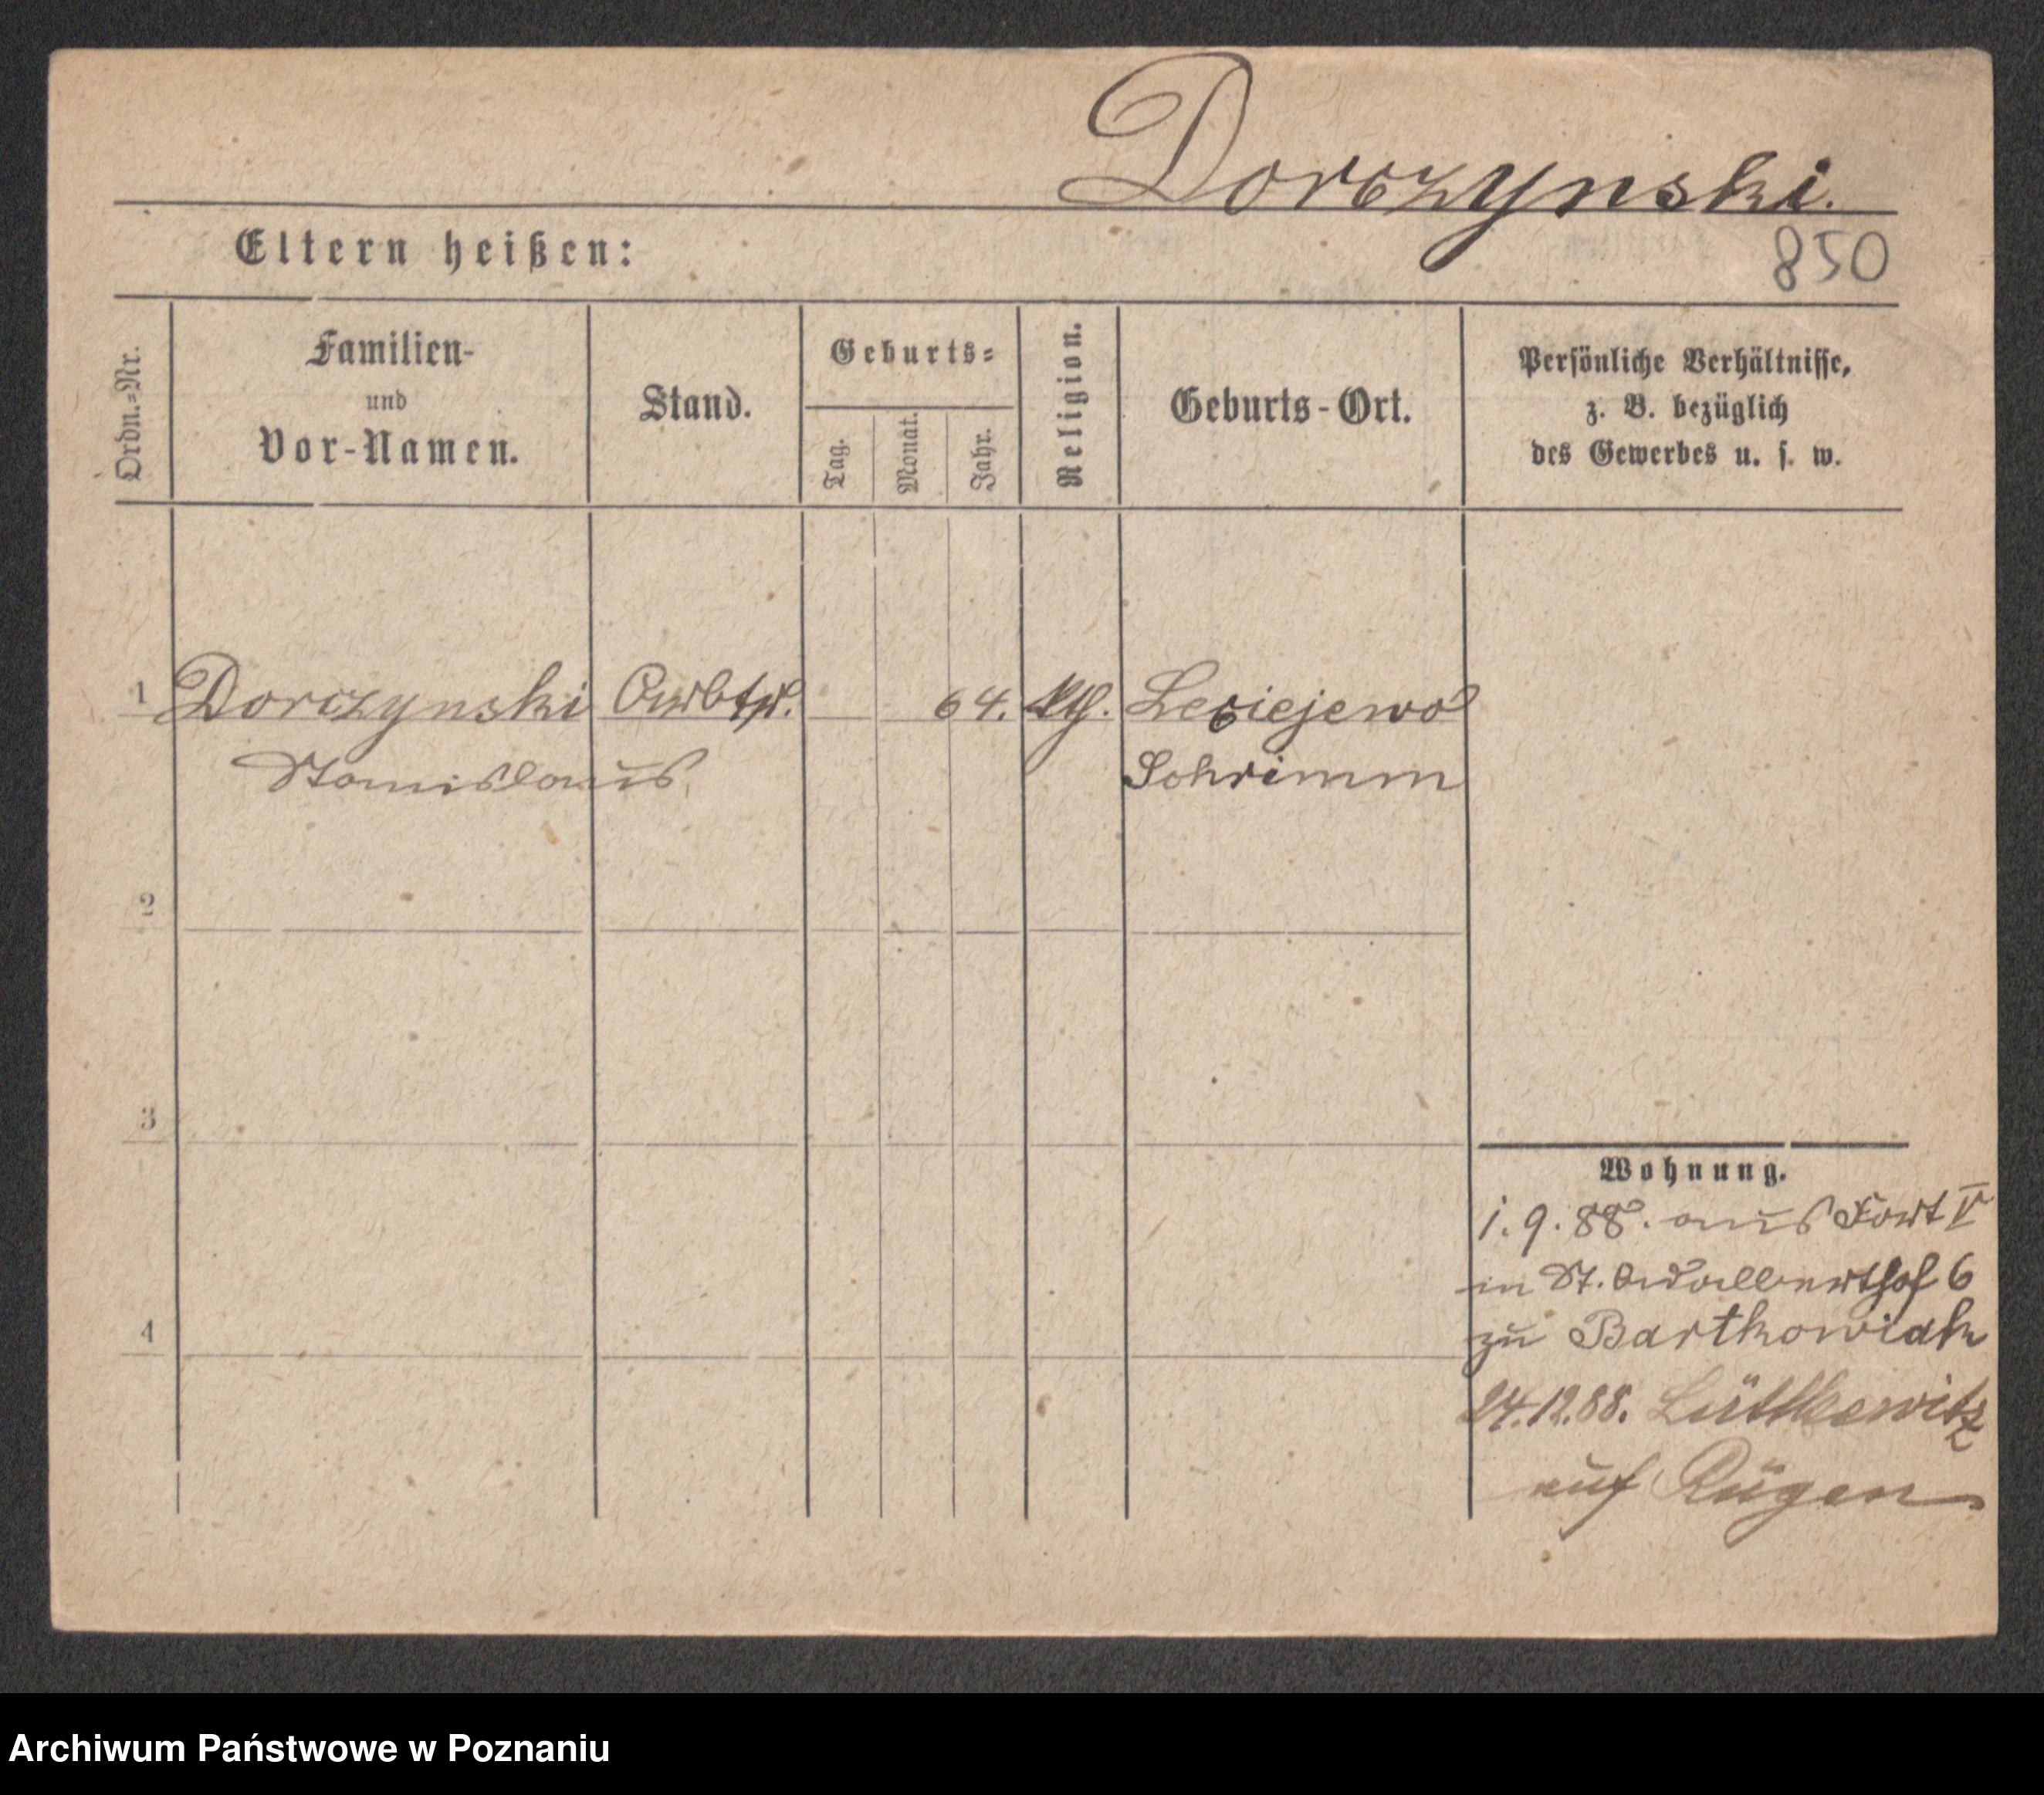 Dorczynski.
Eltern heißen:
850
Ordn.-Nr.
Familien-
und
Vor-Namen.
Stand.
Geburts-
Tag.
Monat.
Jahr.
Religion.
Geburts-Ort.
Persönliche Verhältnisse,
z. B. bezüglich
des Gewerbes u. s. w.
1 Dorczynski Arbtr. 64. kth.
Stanislaus Schrimm
2
3
4
Wohnung.
1.9.88. aus Fort V
in St. Adalberthof 6
zu Bartkowiak
24.12.88. Lüttkewitz
auf Rügen
Archiwum Państwowe w Poznaniu